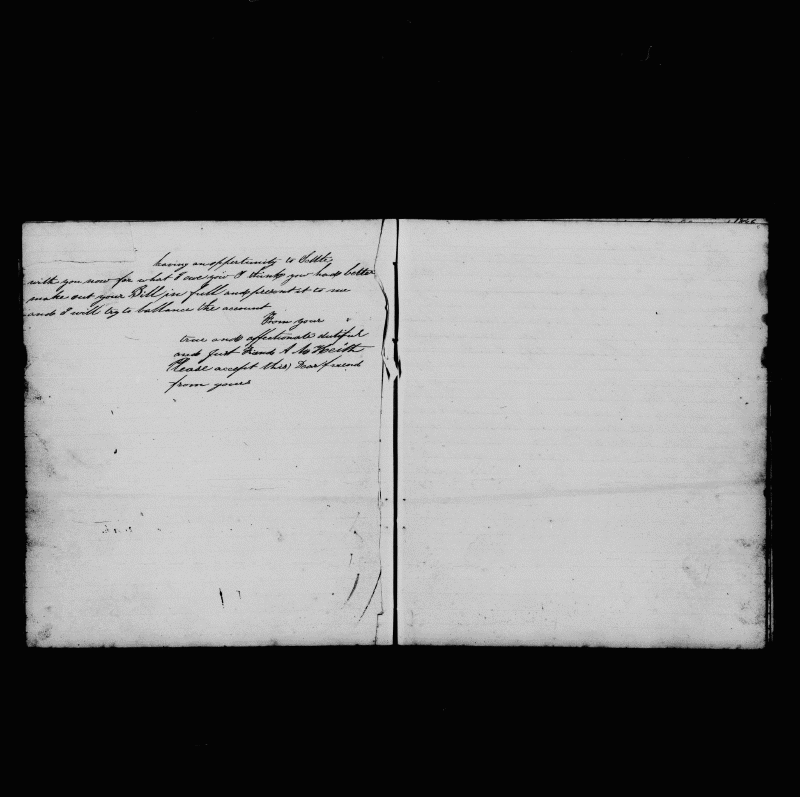 having an oppertunity to Settle
with you now for what I owe you I think you had better
make out your Bill in full and present it to me
and I will try to ballance the account
From your
true and affectionate dutiful
and just friend A Mc Keith
Please accept this Dear friend
from yours
1866